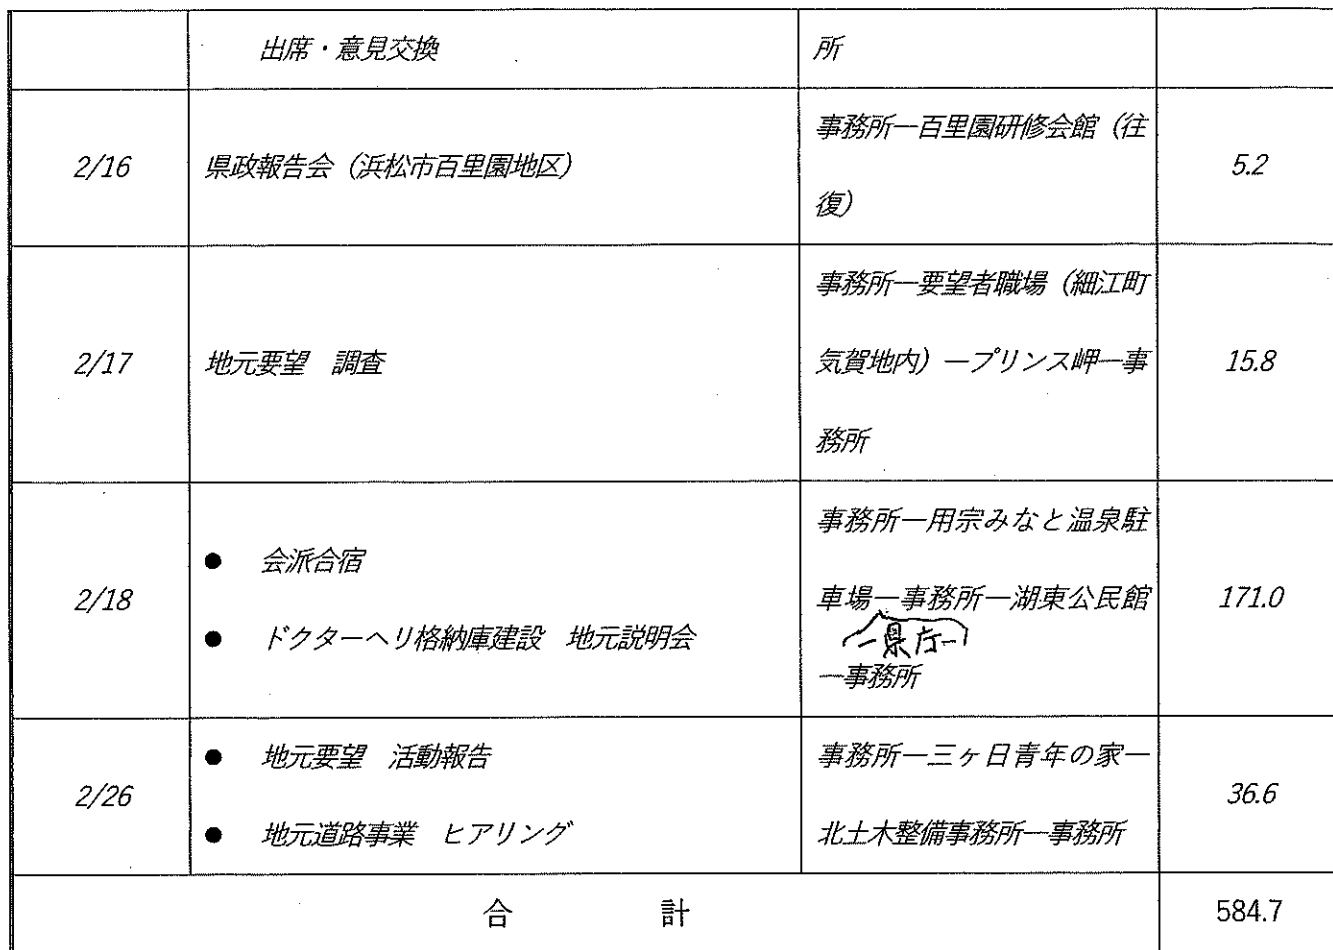 出席・意見交換
所
2/16
県政報告会（浜松市百里園地区）
事務所―百里園研修会館（往
復）
5.2
2/17
地元要望　調査
事務所―要望者職場（細江町
気賀地内）―プリンス岬―事
務所
15.8
2/18
● 会派合宿
● ドクターヘリ格納庫建設　地元説明会
事務所―用宗みなと温泉駐
車場―事務所―湖東公民館
―県庁―
―事務所
171.0
2/26
● 地元要望　活動報告
● 地元道路事業　ヒアリング
事務所―三ヶ日青年の家―
北土木整備事務所―事務所
36.6
合　計
584.7